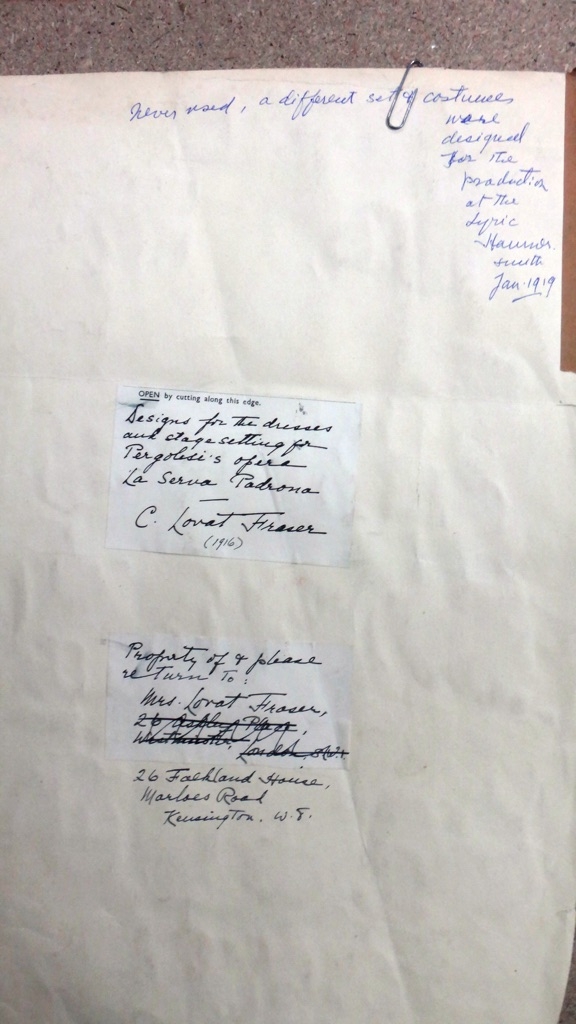 never used, a different set of costumes
were
designed
for the
production
at the
Lyric
Hammer
smith
Jan. 1919
OPEN by cutting along this edge.
Designs for the dresses
and stage setting for
Pergolesi's opera
La Serva Padrona
C. Lovat Fraser
(1916)
Property of & please
return to:
Mrs. Lovat Fraser,
26 Ashley Place,
Westminster, London, S.W.1.
26 Falkland House,
Marloes Road
Kensington. W.8.